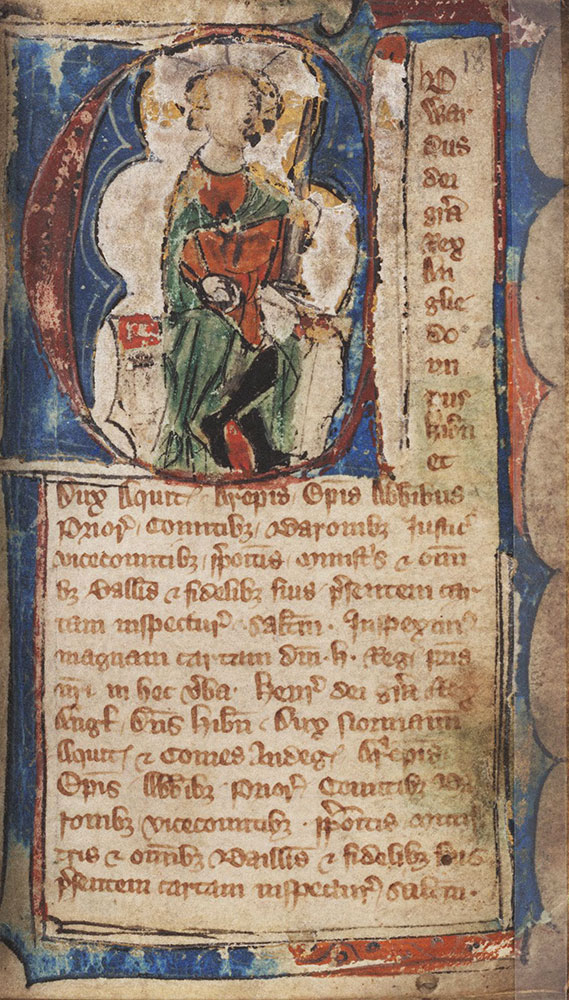 18
D
War
dus
dei
gra
Rex
An
glie
do
mi
nus
hibn
et
Dux Aquit. Archiepis. Epis. Abbibus
Prior. Comitibz. Baronibz. Justic.
vicecomitibz. ppositis. ministris & omi
bz Ballis & fidelibz suis psentem car
tam inspectur. saltm. Inspexim
magnam cartam dni. h. Reg. pris
nri. in hec vba. Henr. dei gra Rex
Angl. dns hibn & dux normann
Aquit. & Comes Andeg. Archiepis
Epis. Abbibz. Prior. Comitibz. Ba
ronibz vicecomitibz. ppositis. minis
tris & omibz Baillis & fidelibz suis
psentem cartam inspectur. saltm.